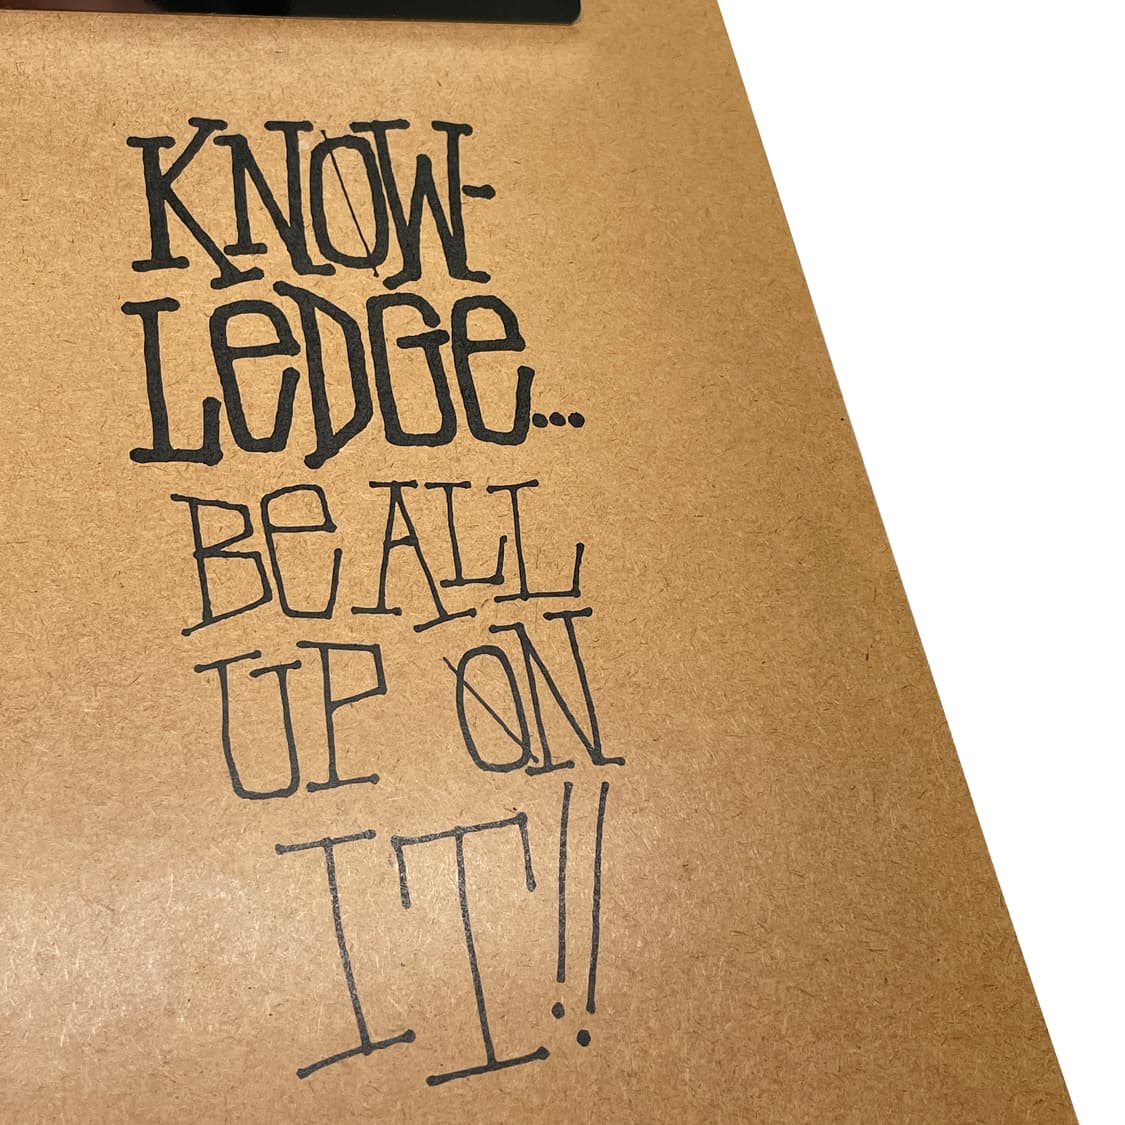 KNØW-
LeDGe...
Be ALL
UP ØN
IT!!